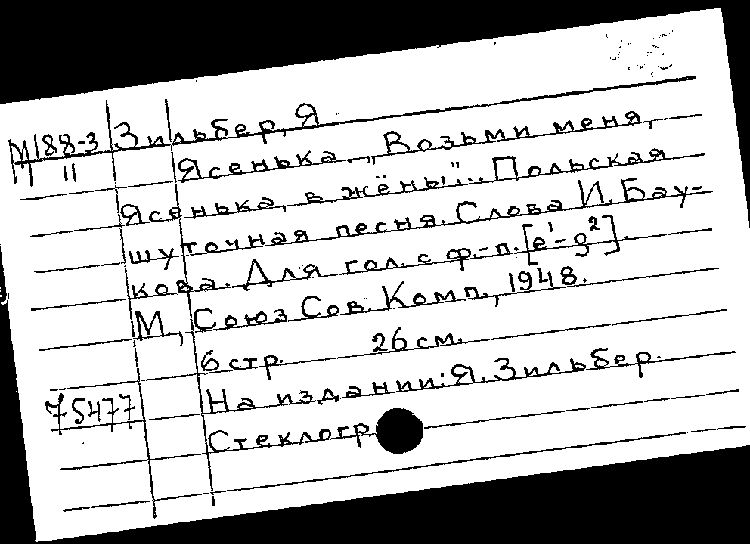 М188-3 Зильбер, Я
11 Ясенька. „Возьми меня,
Ясенька, в жёны"... Польская
шуточная песня. Слова И. Бау-
кова. Для гол. с ф.-п. [e¹-g²].
М., Союз Сов. Комп., 1948.
6 стр. 26 см.
75477 На издании: Я. Зильбер.
Стеклогр